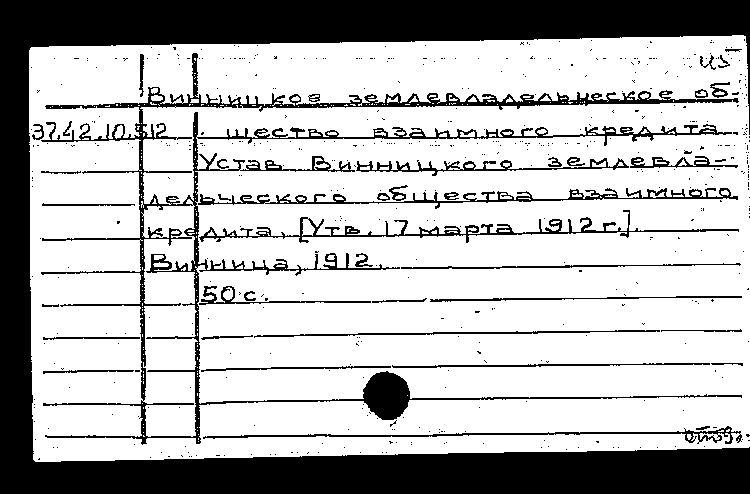 Винницкое землевладельческое об-
37.42.10.512 щество взаимного кредита
Устав Винницкого землевла-
дельческого общества взаимного
кредита. [Утв. 17 марта 1912 г.].
Винница, 1912.
50 с.